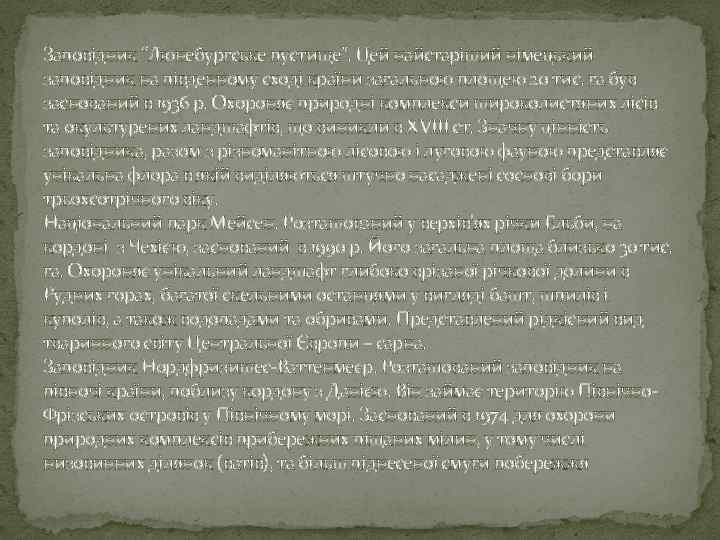 Заповідник “Люнебургське пустище”. Цей найстаріший німецький
заповідник на південному сході країни загальною площею 20 тис. га був
заснований в 1936 р. Охороняє природні комплекси широколистяних лісів
та окультурених ландшафтів, що виникли в XVIII ст. Значну цінність
заповідника, разом з різноманітною лісовою і луговою фауною представляє
унікальна флора в якій виділяються штучно насаджені соснові бори
трьохсотрічного віку.
Національний парк Мейсен. Розташований у верхів'ях річки Ельби, на
кордоні з Чехією, заснований в 1990 р. Його загальна площа близько 30 тис.
га. Охороняє унікальний ландшафт глибоко врізаної річкової долини в
Рудних горах, багатої скельними останцями у вигляді башт, шпилів і
куполів, а також водопадами та обривами. Представлений рідкісний вид
тваринного світу Центральної Європи – сарна.
Заповідник Нордфризишес-Ваттенмеєр. Розташований заповідник на
півночі країни, поблизу кордону з Данією. Він займає територію Північно-
Фризських островів у Північному морі. Заснований в 1974 для охорони
природних комплексів прибережних піщаних мілин, у тому числі
низовинних ділянок (ватів), та більш піднесеної смуги побережжя